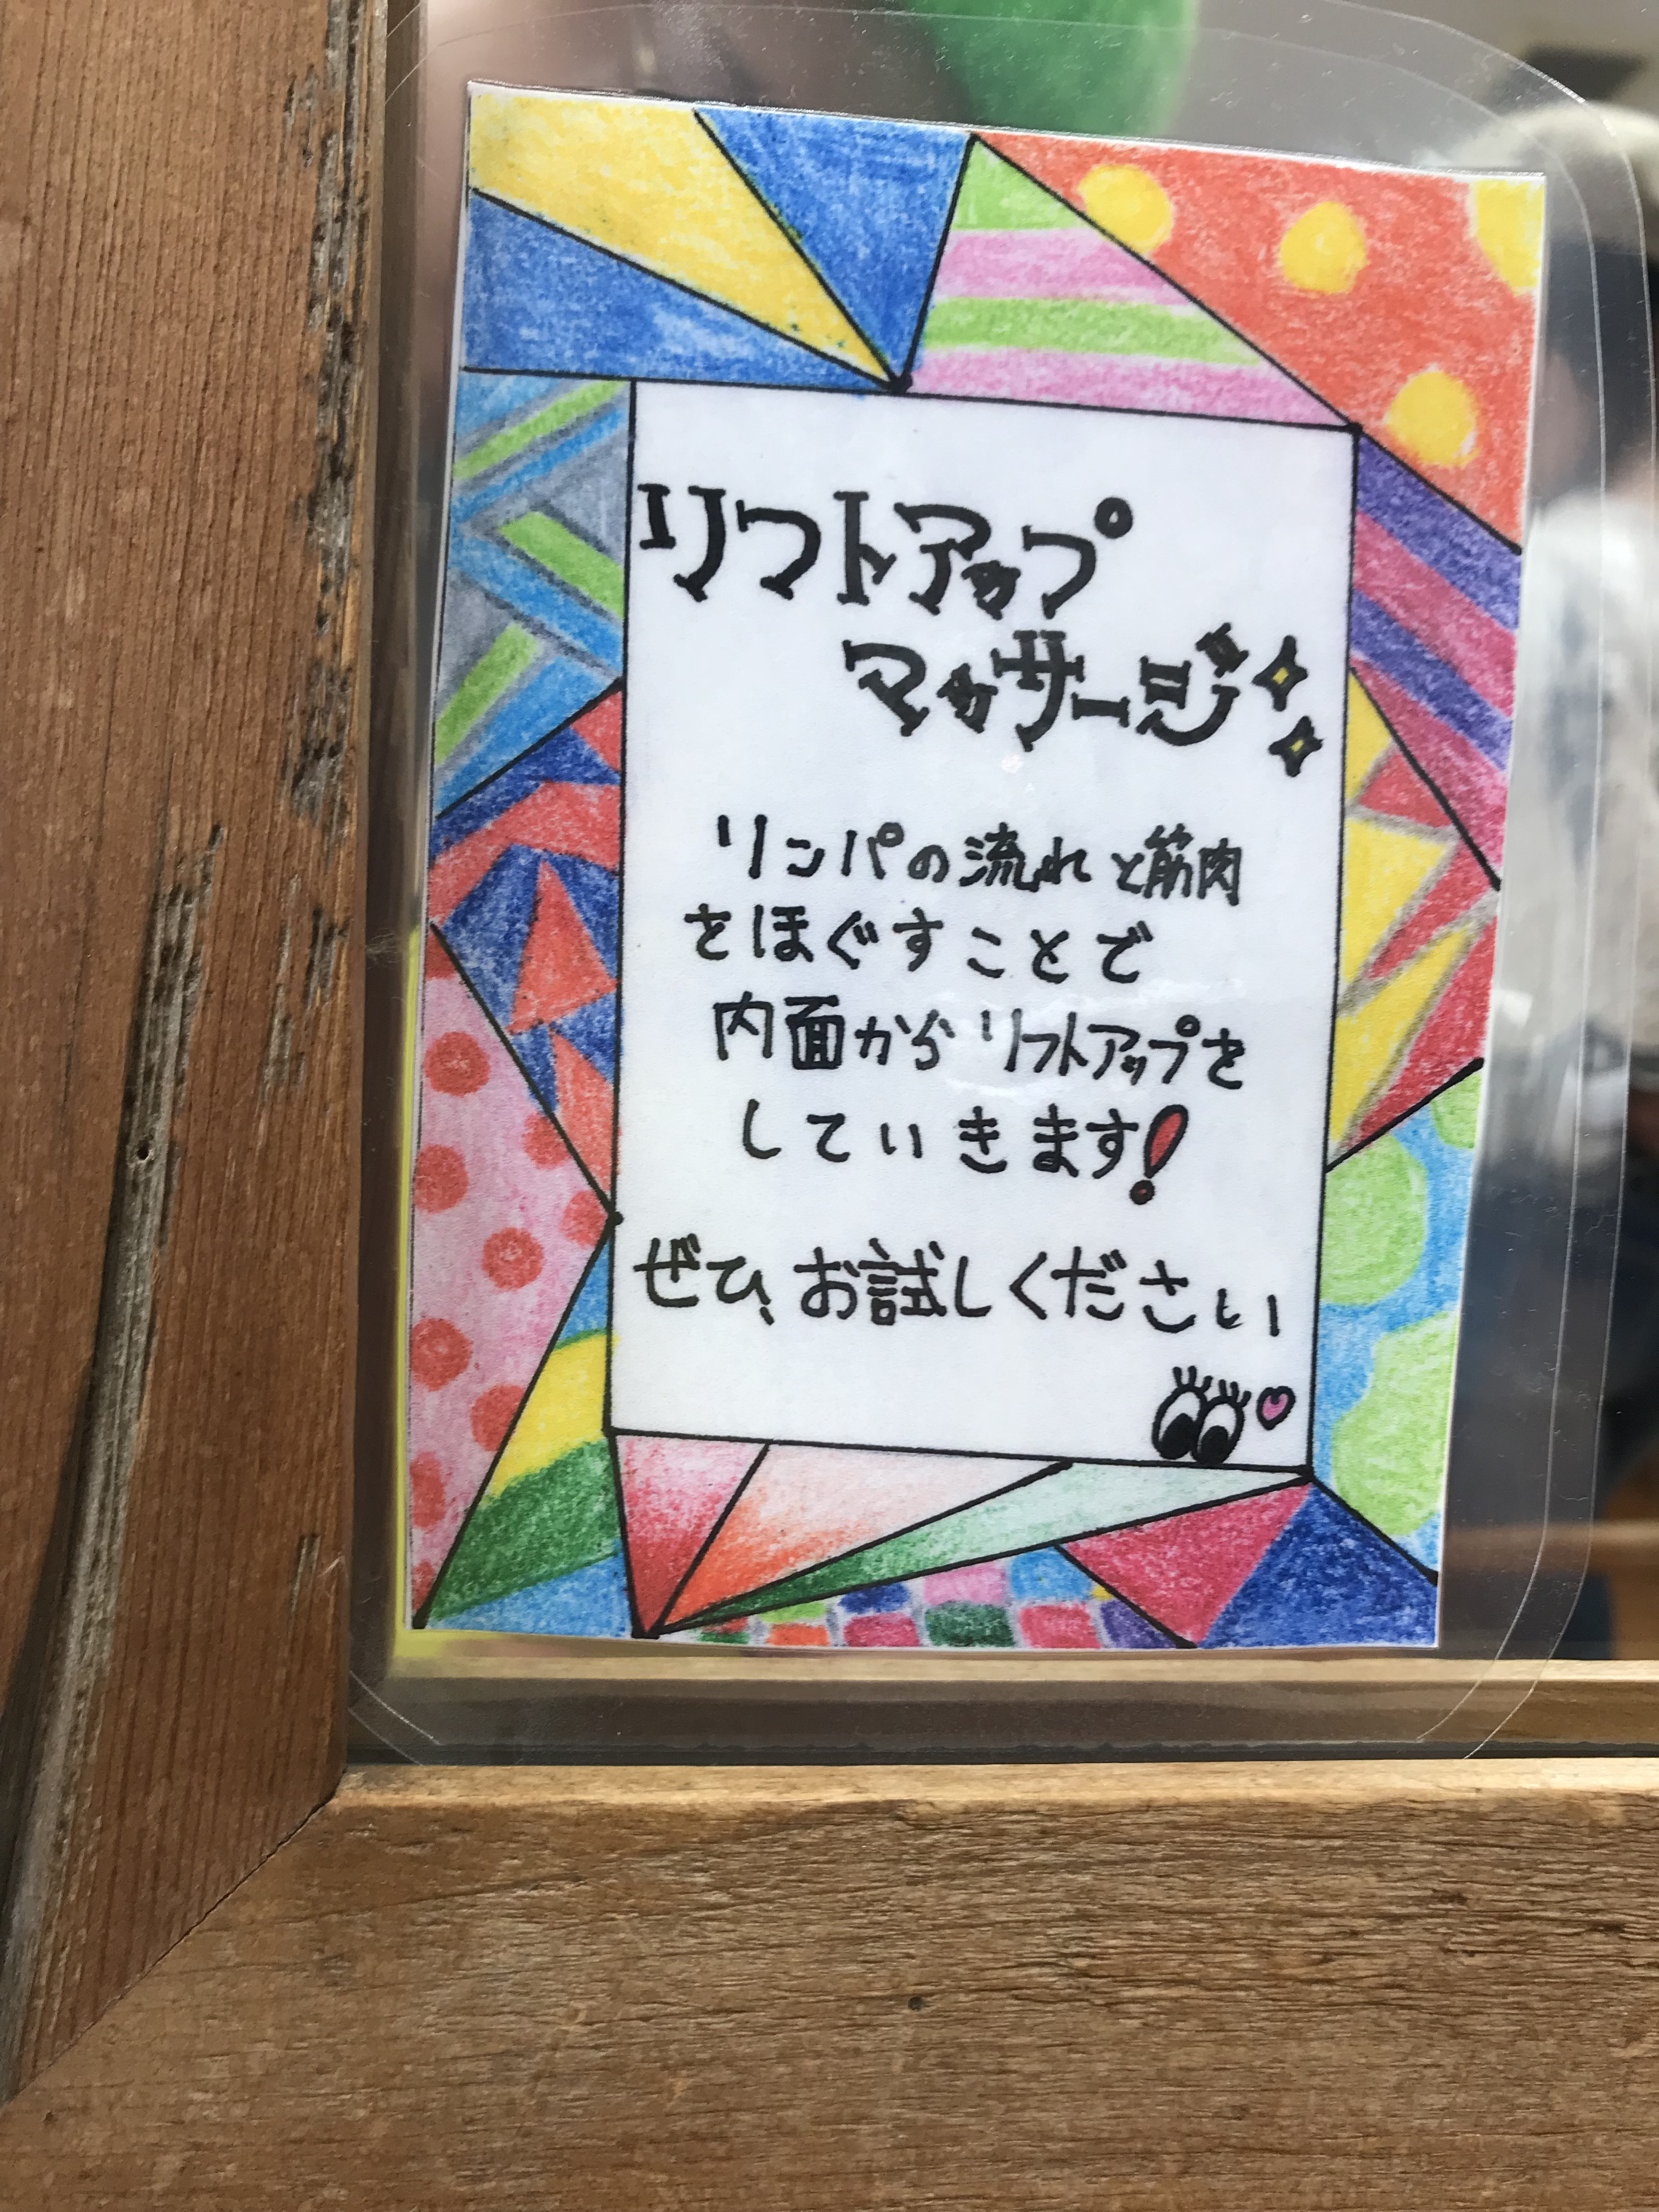 リフトアップ
マッサージ
リンパの流れと筋肉
をほぐすことで
内面からリフトアップを
していきます!
ぜひ、お試しください